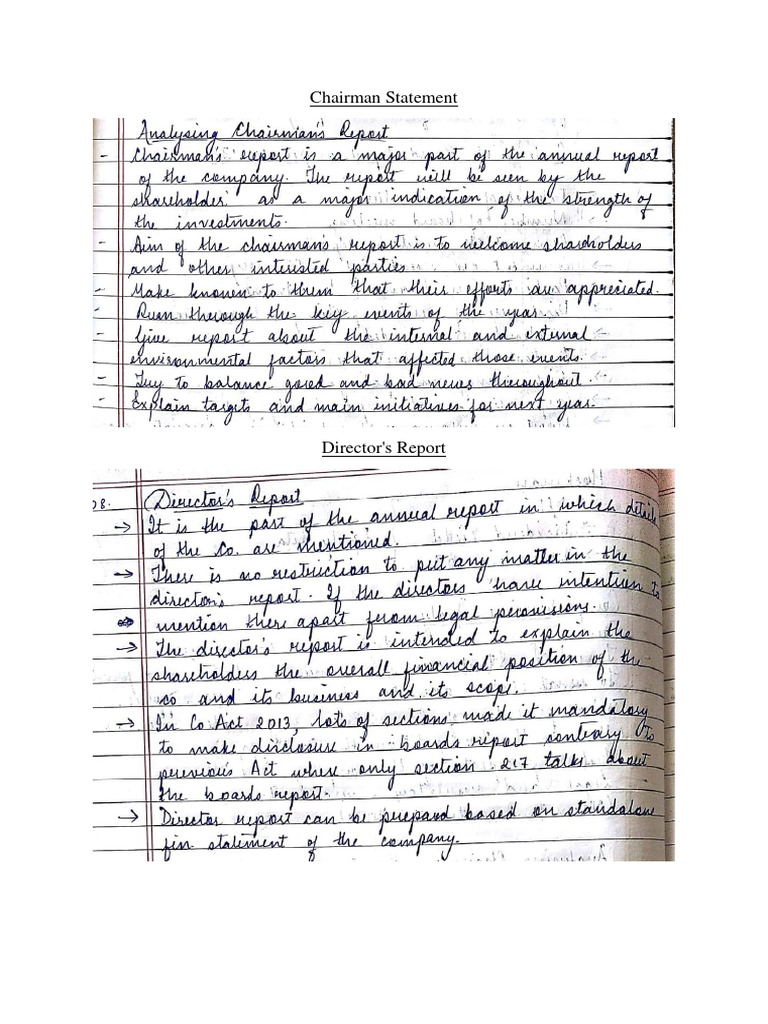 Chairman Statement
Analysing Chairman's Report
- Chairman's report is a major part of the annual report
of the company. The report will be seen by the
shareholder as a major indication of the strength of
the investments.
- Aim of the chairman's report is to welcome shareholders
and other interested parties
- Make known to them that their efforts are appreciated.
- Run through the key events of the year.
- Give report about the internal and external
environmental factors that affected those events.
- Try to balance good and bad news throughout.
- Explain targets and main initiatives for next year.
Director's Report
08. Director's Report
→ It is the part of the annual report in which details
of the Co. are mentioned.
→ There is no restriction to put any matter in the
director's report. If the directors have intention to
mention there apart from legal provisions.
→ The director's report is intended to explain the
shareholders the overall financial position of the
co and its business and its scope.
→ In Co Act 2013, lots of sections made it mandatory
to make disclosure in boards report contrary to
previous Act where only section 217 talks about
the boards report.
→ Director report can be prepared based on standalone
fin. statement of the company.